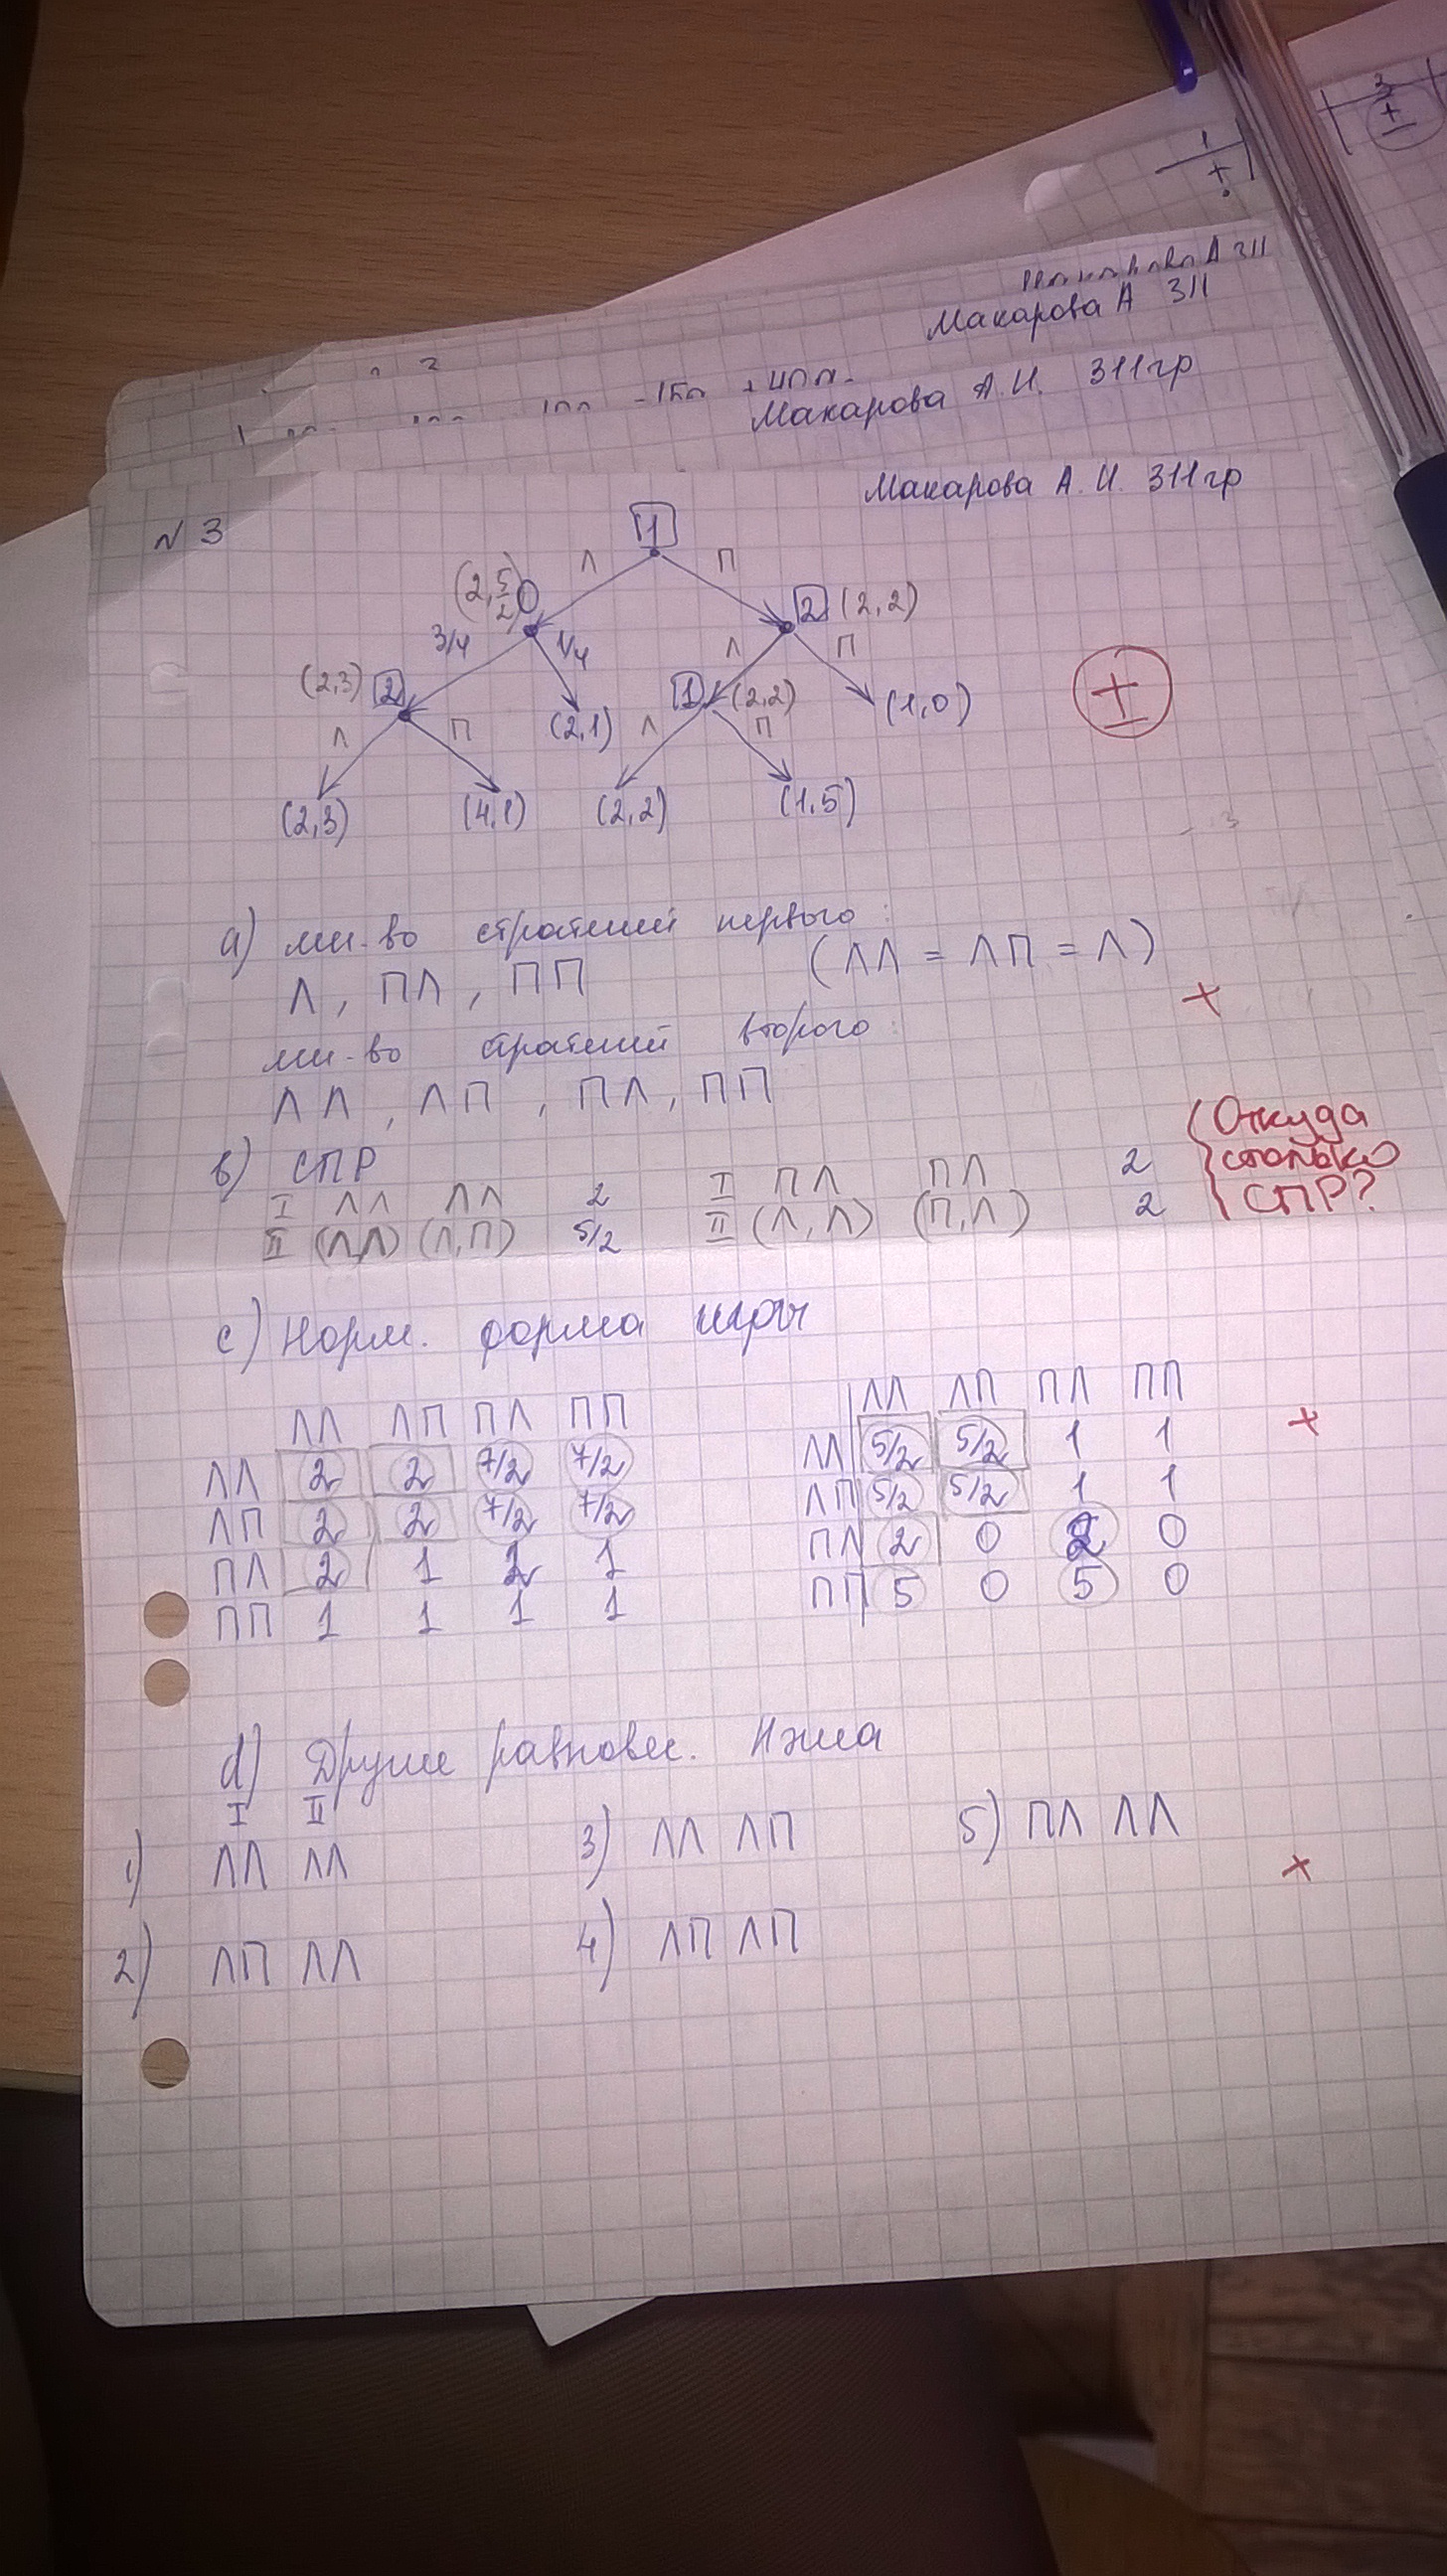 3
±
1
+
Макарова А 311
Макарова А 311
Макарова А.И. 311гр
Макарова А.И. 311гр
№3
1
Л П
(2, 5/2) 0 2 (2,2)
3/4 1/4 Л П
(2,3) 2 (2,1) 1 (2,2) (1,0)
Л П Л П
(2,3) (4,1) (2,2) (1,5)
±
а) мн-во стратегий первого:
Л, ПЛ, ПП (ЛЛ = ЛП = Л)
+
мн-во стратегий второго:
ЛЛ, ЛП, ПЛ, ПП
в) СПР
I ЛЛ ЛЛ 2 I ПЛ ПЛ 2
II (Л,Л) (Л,П) 5/2 II (Л,Л) (П,Л) 2
Откуда
столько
СПР?
с) Норм. форма игры
ЛЛ ЛП ПЛ ПП
ЛЛ 2 2 7/2 7/2
ЛП 2 2 7/2 7/2
ПЛ 2 1 2 1
ПП 1 1 1 1
ЛЛ ЛП ПЛ ПП
ЛЛ 5/2 5/2 1 1
ЛП 5/2 5/2 1 1
ПЛ 2 0 2 0
ПП 5 0 5 0
+
d) Другие равновес. Нэша
I II
1) ЛЛ ЛЛ 3) ЛЛ ЛП 5) ПЛ ЛЛ
+
2) ЛП ЛЛ 4) ЛП ЛП